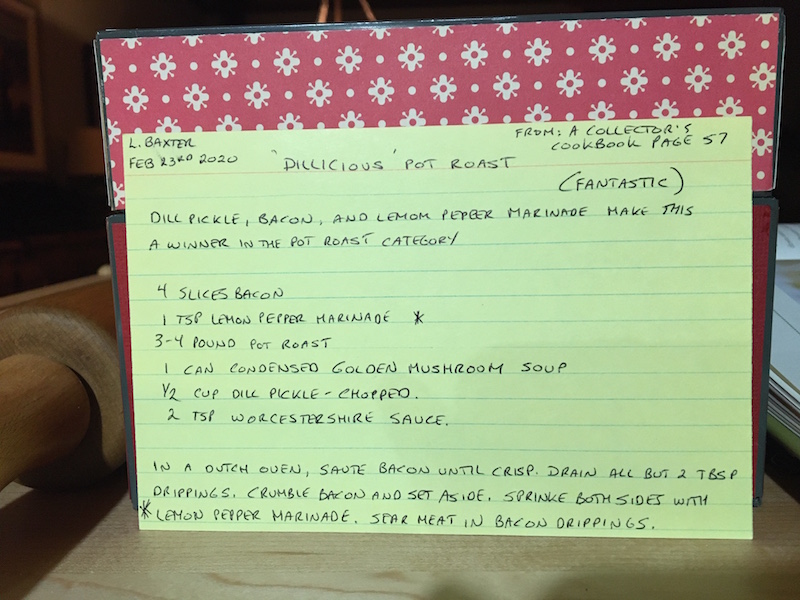 L. BAXTER
FEB 23RD 2020
FROM: A COLLECTOR'S
COOKBOOK PAGE 57
'DILLICIOUS' POT ROAST
(FANTASTIC)
DILL PICKLE, BACON, AND LEMOM PEPPER MARINADE MAKE THIS
A WINNER IN THE POT ROAST CATEGORY
4 SLICES BACON
1 TSP LEMON PEPPER MARINADE *
3-4 POUND POT ROAST
1 CAN CONDENSED GOLDEN MUSHROOM SOUP
1/2 CUP DILL PICKLE - CHOPPED.
2 TSP WORCESTERSHIRE SAUCE.
IN A DUTCH OVEN, SAUTE BACON UNTIL CRISP. DRAIN ALL BUT 2 TBSP
DRIPPINGS. CRUMBLE BACON AND SET ASIDE. SPRINKE BOTH SIDES WITH
* LEMON PEPPER MARINADE. SEAR MEAT IN BACON DRIPPINGS.